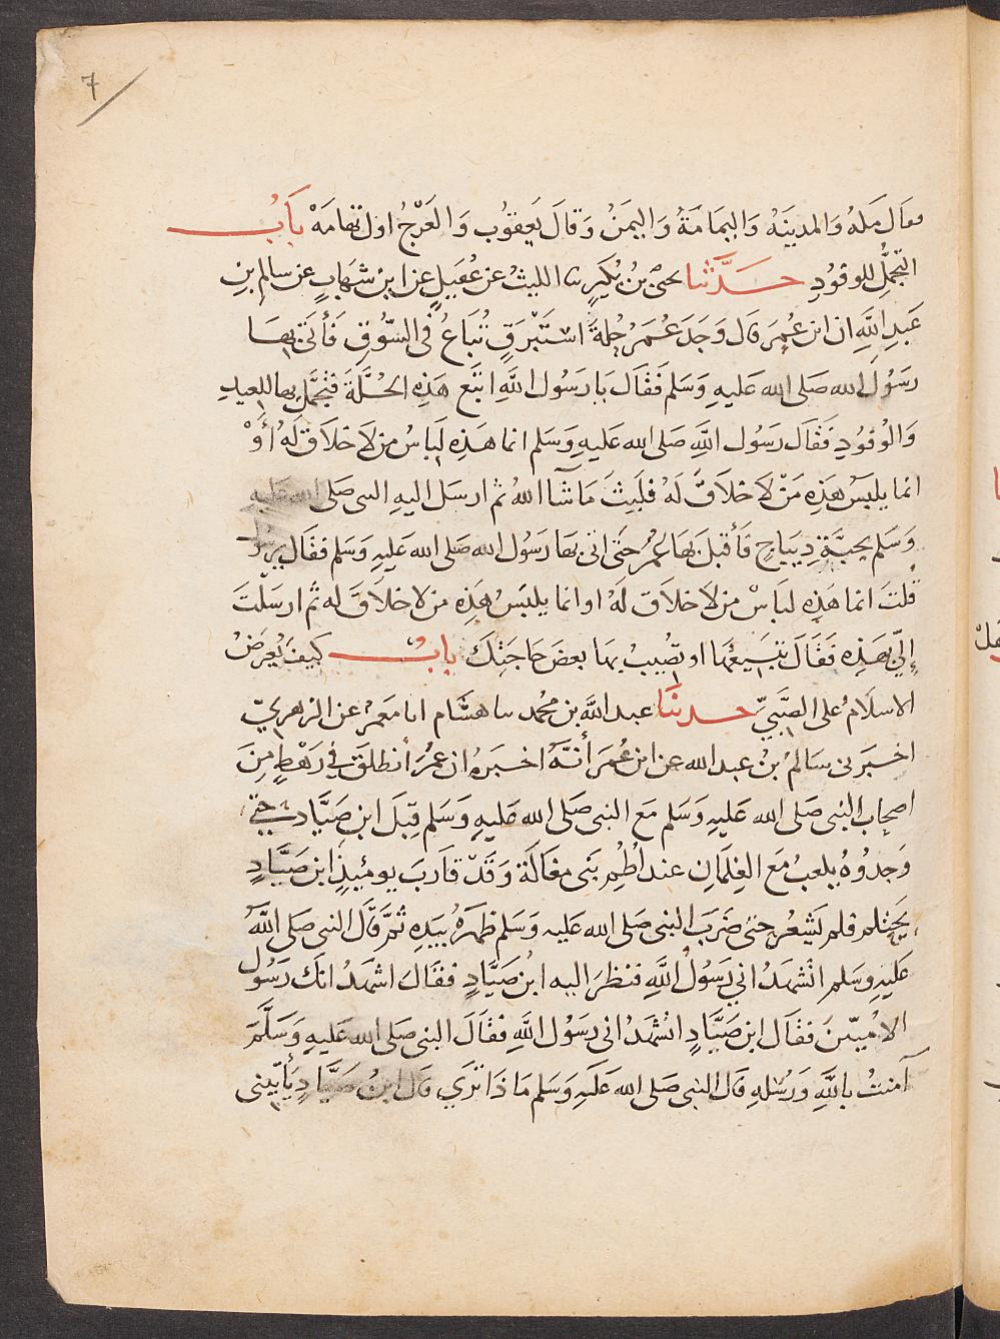 7
فقال مكة والمدينَة وَاليمَامَةُ وَاليمَنُ وَقالَ يَعقوُب وَالعَرْجُ اول تهامَةْ بَابُ
التجمُّل للوفوُدِ حَدَّثنا يحيى بنُ بُكَيرٍ نا الليثُ عن عُقيَلٍ عن ابن شهَابٍ عن سالِم بنِ
عَبدِ اللَّهِ ان ابن عُمرَ قال وَجَدَ عُمَرُ حُلةَ استَبْرَقٍ تُبَاعُ فى السُّوقِ فَأتَى بهَا
رسَوُلَ الله صَلى الله عَليهِ وَسَلم فَقَال يَا رسَوُل اللَّهِ ابتَع هَذِهِ الحُلَّةَ فتجَمَّل بها للعِيدِ
وَالوُفوُدِ فَقَال رَسوُل اللَّهِ صَلى الله عَليهِ وَسَلم انما هَذِهِ لبَاسُ من لاَ خلاَق لَهُ أوْ
انما يلبَسُ هَذِهِ مَنْ لاَ خلاَقَ لَهُ فلَبِثَ مَا شآَ اللهُ ثم ارسَل اليهِ النبى صَلى الله عَليهِ
وَسَلم بجبَّةِ دِيبَاجٍ فَأقبَل بَهَا عُمرُ حَتى اتى بهَا رَسوُل الله صَلى الله عَليهِ وَسَلم فقَال يرسُول
قلتَ انما هَذِهِ لبَاسُ من لاَ خلاَق لَهُ او انما يلبَسُ هَذِهِ من لا خلاَقَ له ثم ارسَلتَ
إليَّ بهَذِهِ فَقَالَ تبَيعُهَا او تصُيبُ بها بعضَ حَاجَتِكَ بابُ كيفَ يُعرَضُ
الاسلَامُ على الصَّبَيِّ حدثنَا عبد اللَّه بن محُمد نا هشَام انا معمَرُ عن الزهريّ
اخبَرنى سَالمُ بنُ عبد الله عن ابن عُمَر أنهُ اخبَرهُ ان عُمرَ أنطلقَ في رَهْطٍ مِنَ
اصحَاب النبى صَلى الله عَليهِ وَسَلم مَع النبى صَلى الله عَليهِ وَسَلم قِبَل ابنِ صَيَّادٍ حتى
وَجدوُهُ يلعبُ مَع الغِلمَانِ عند اُطُمِ بَنى مغاَلَة وَقَدْ قارَبَ يومئِذٍ ابن صَيَّادٍ
يَحَتلم فلم يَشعُر حتى ضَرَبَ النبى صَلى الله عَليه وَسَلم ظهرَهُ بيَدِهِ ثمَّ قَال النبى صَلى اللَّهُ
عَليَهِ وسَلم اتَشهَدُ اني رَسوُلُ اللَّهِ فنظرَ اليه ابُن صَيَّادٍ فقَالَ اشهَدُ انك رَسوُل
الاُميّينَ فقَال ابن صَيَّادٍ اتَشهَدُ انى رسَوُل اللَّهِ فقَالَ النبى صَلى الله عَليهِ وَسَلَّمَ
آمنتُ باللَّهِ وَرُسُلهِ قال النبى صَلى الله عَلَيهِ وَسَلم مَا ذَا تَرَي قال ابنُ صَيَّادٍ يَأتينى